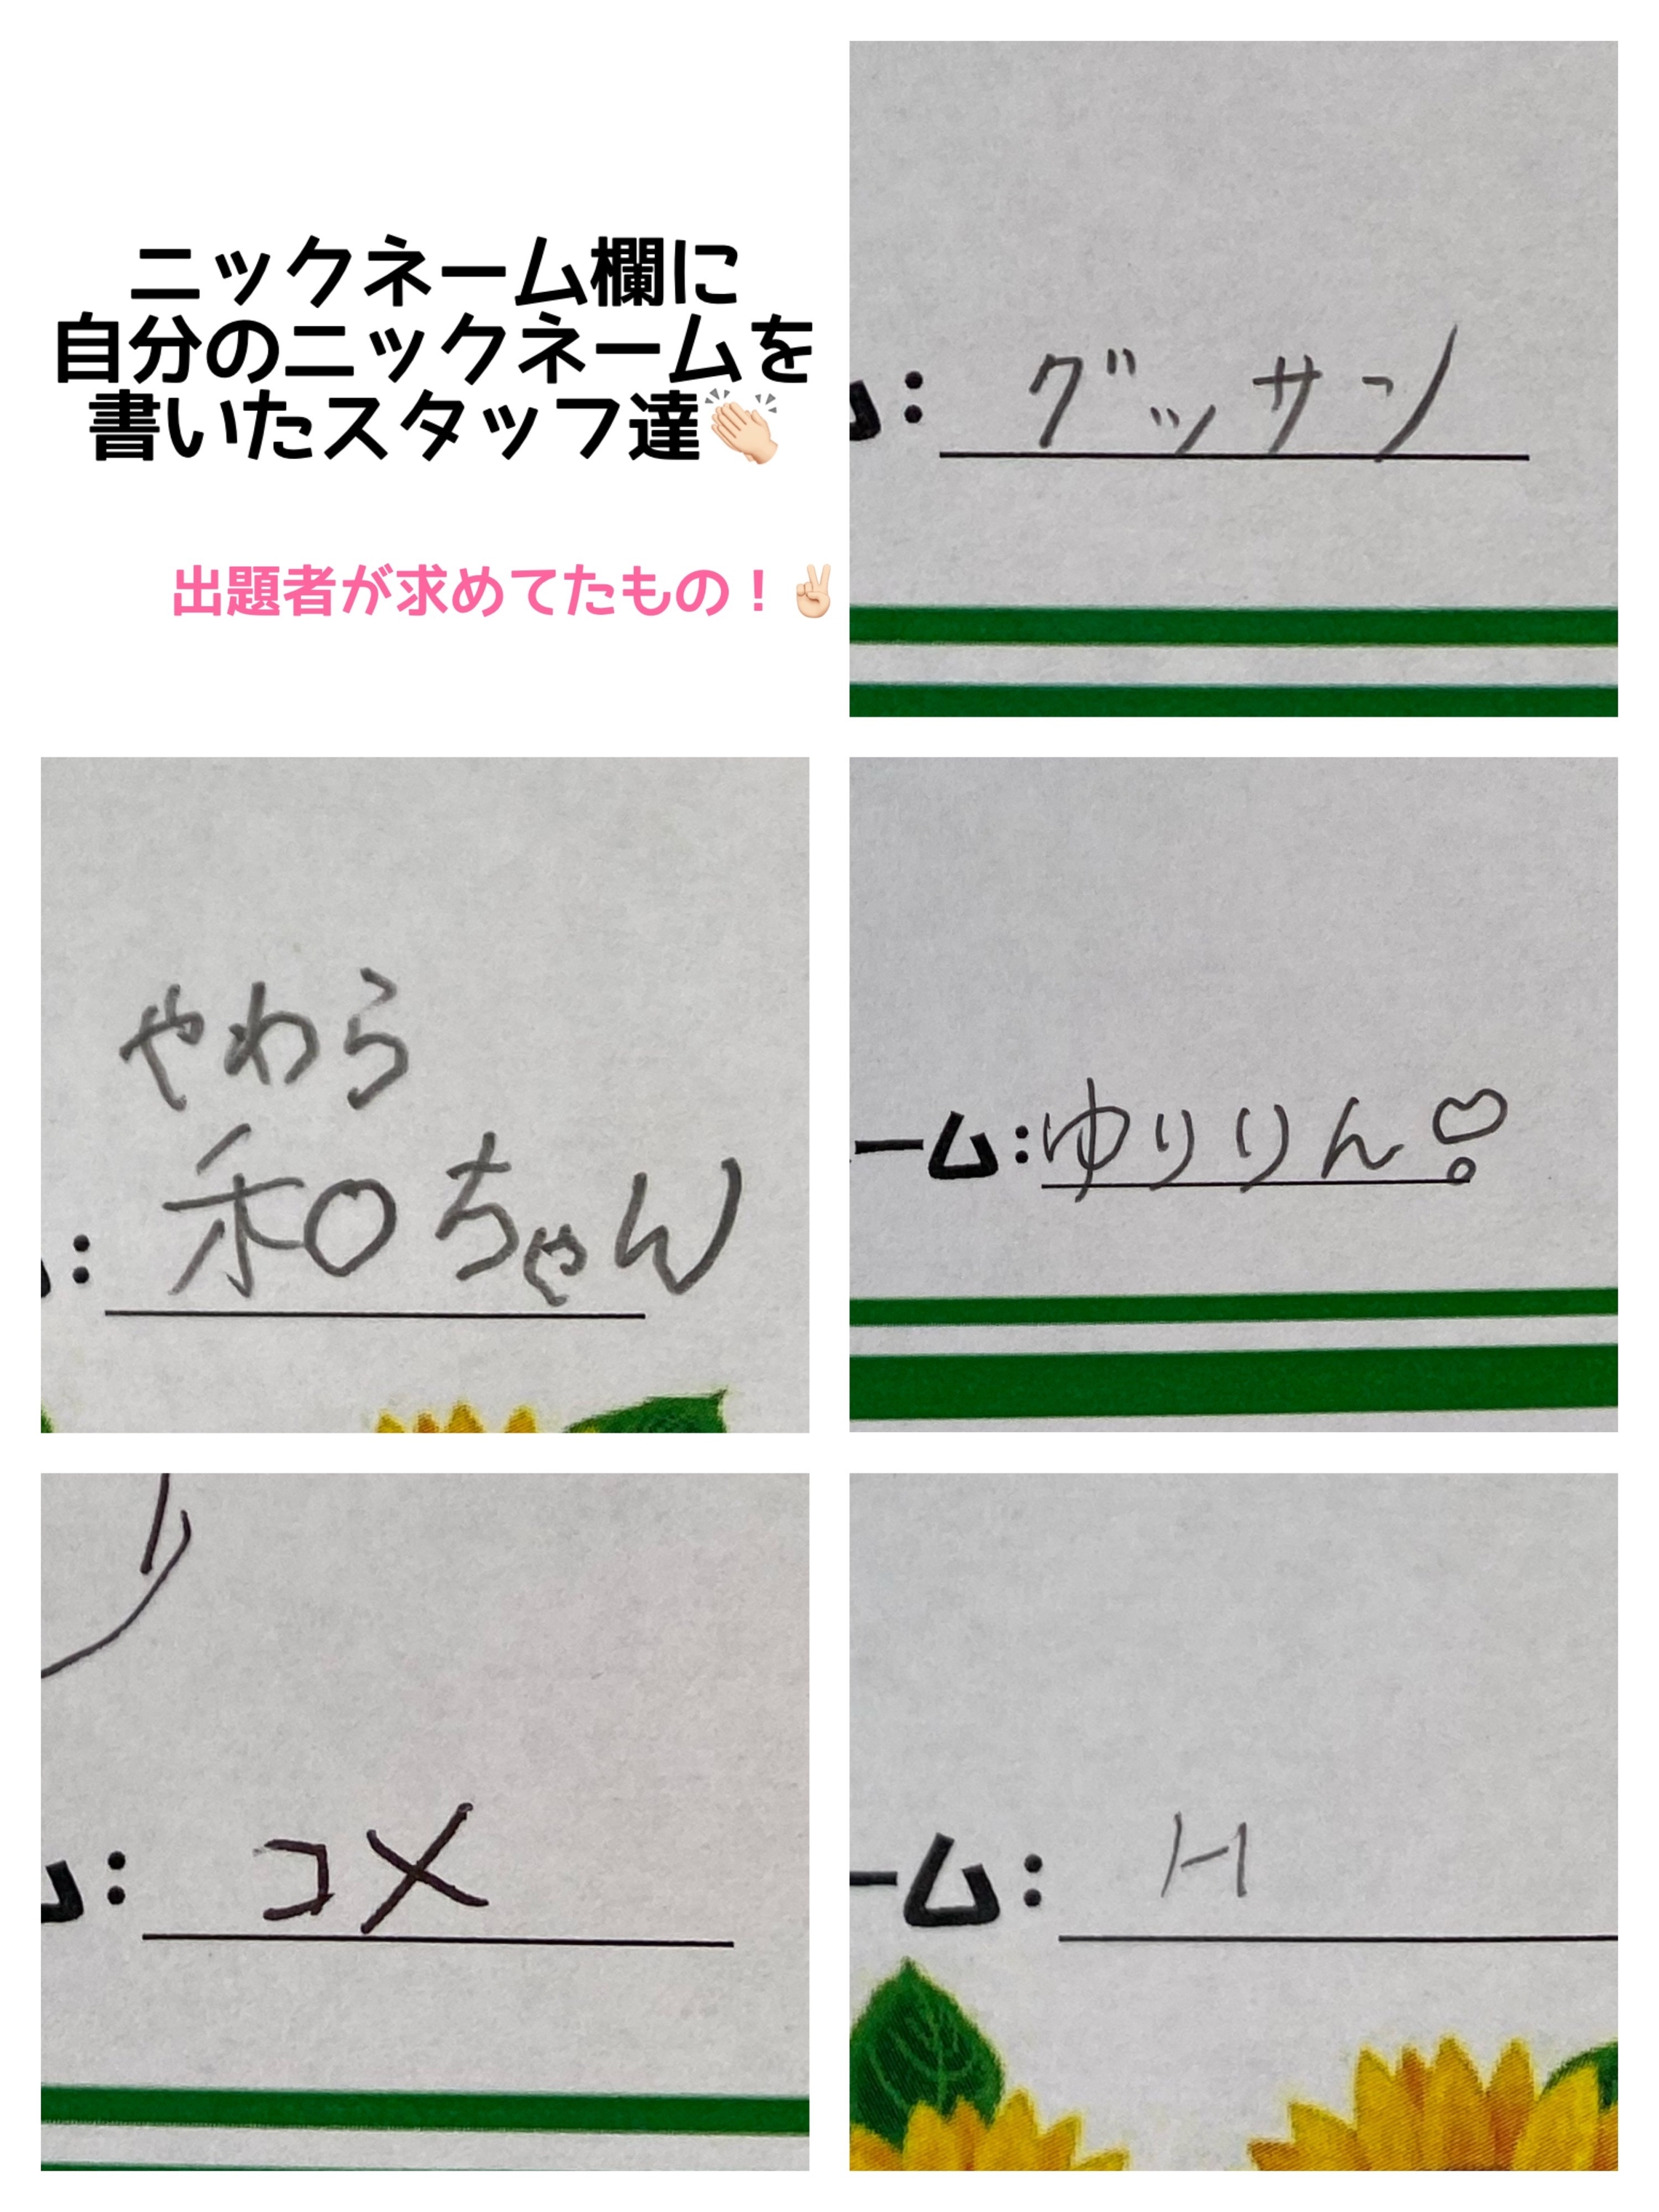 ニックネーム欄に
自分のニックネームを
書いたスタッフ達👏🏻
出題者が求めてたもの！✌🏻
ム: グッサン
やわら
: 和ちゃん
ーム:ゆりりん♡
ム: コメ
ーム: H